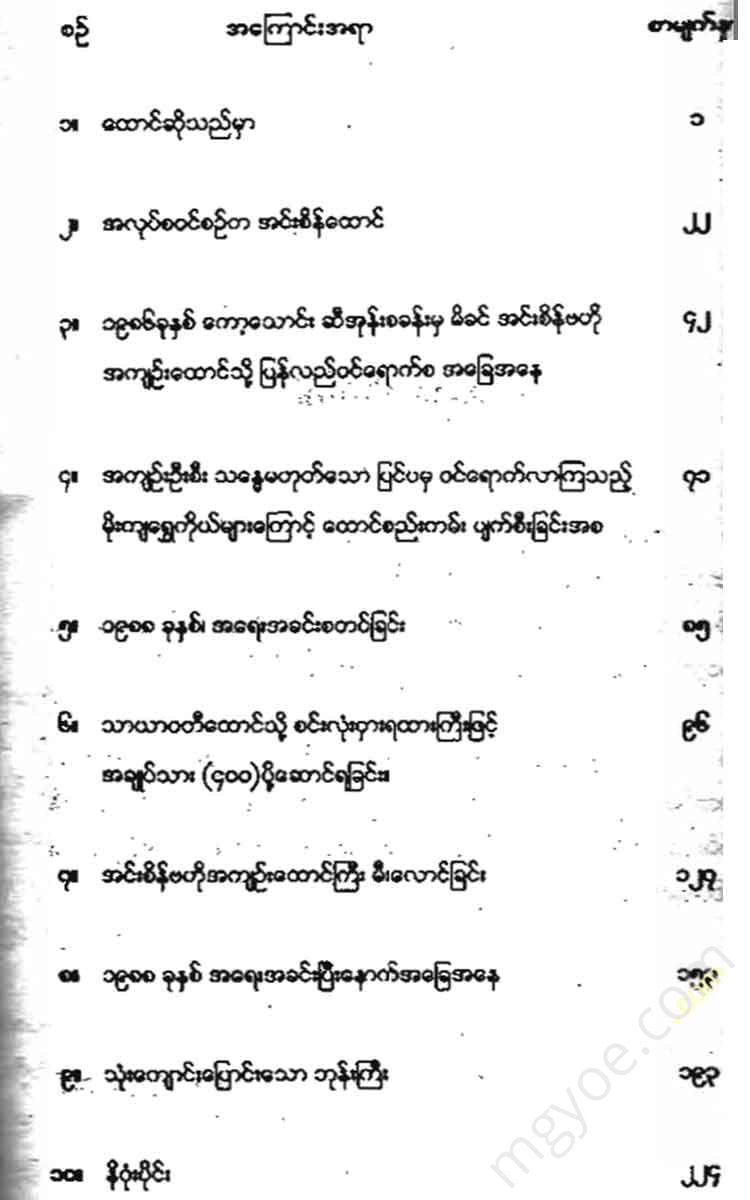 စဉ် အကြောင်းအရာ စာမျက်နှာ
၁။ ထောင်ဆိုသည်မှာ ၁
၂။ အလုပ်စဝင်စဉ်က အင်းစိန်ထောင် ၂၂
၃။ ၁၉၈၆ခုနှစ် ကော့သောင်း ဆီအုန်းစခန်းမှ မိခင် အင်းစိန်ဗဟို ၄၂
အကျဉ်းထောင်သို့ ပြန်လည်ဝင်ရောက်စ အခြေအနေ
၄။ အကျဉ်းဦးစီး သန္ဓေမဟုတ်သော ပြင်ပမှ ဝင်ရောက်လာကြသည့် ၇၁
မိုးကျရွှေကိုယ်များကြောင့် ထောင်စည်းကမ်း ပျက်စီးခြင်းအစ
၅။ ၁၉၈၈ ခုနှစ်၊ အရေးအခင်းစတင်ခြင်း ၈၅
၆။ သာယာဝတီထောင်သို့ စင်းလုံးငှားရထားကြီးဖြင့် ၉၆
အချုပ်သား (၄၀၀)ပို့ဆောင်ရခြင်း။
၇။ အင်းစိန်ဗဟိုအကျဉ်းထောင်ကြီး မီးလောင်ခြင်း ၁၂၇
၈။ ၁၉၈၈ ခုနှစ် အရေးအခင်းပြီးနောက်အခြေအနေ
၉။ သုံးကျောင်းပြောင်းသော ဘုန်းကြီး ၁၉၃
၁၀။ နိဂုံးပိုင်း ၂၂၄
mgyoe.com